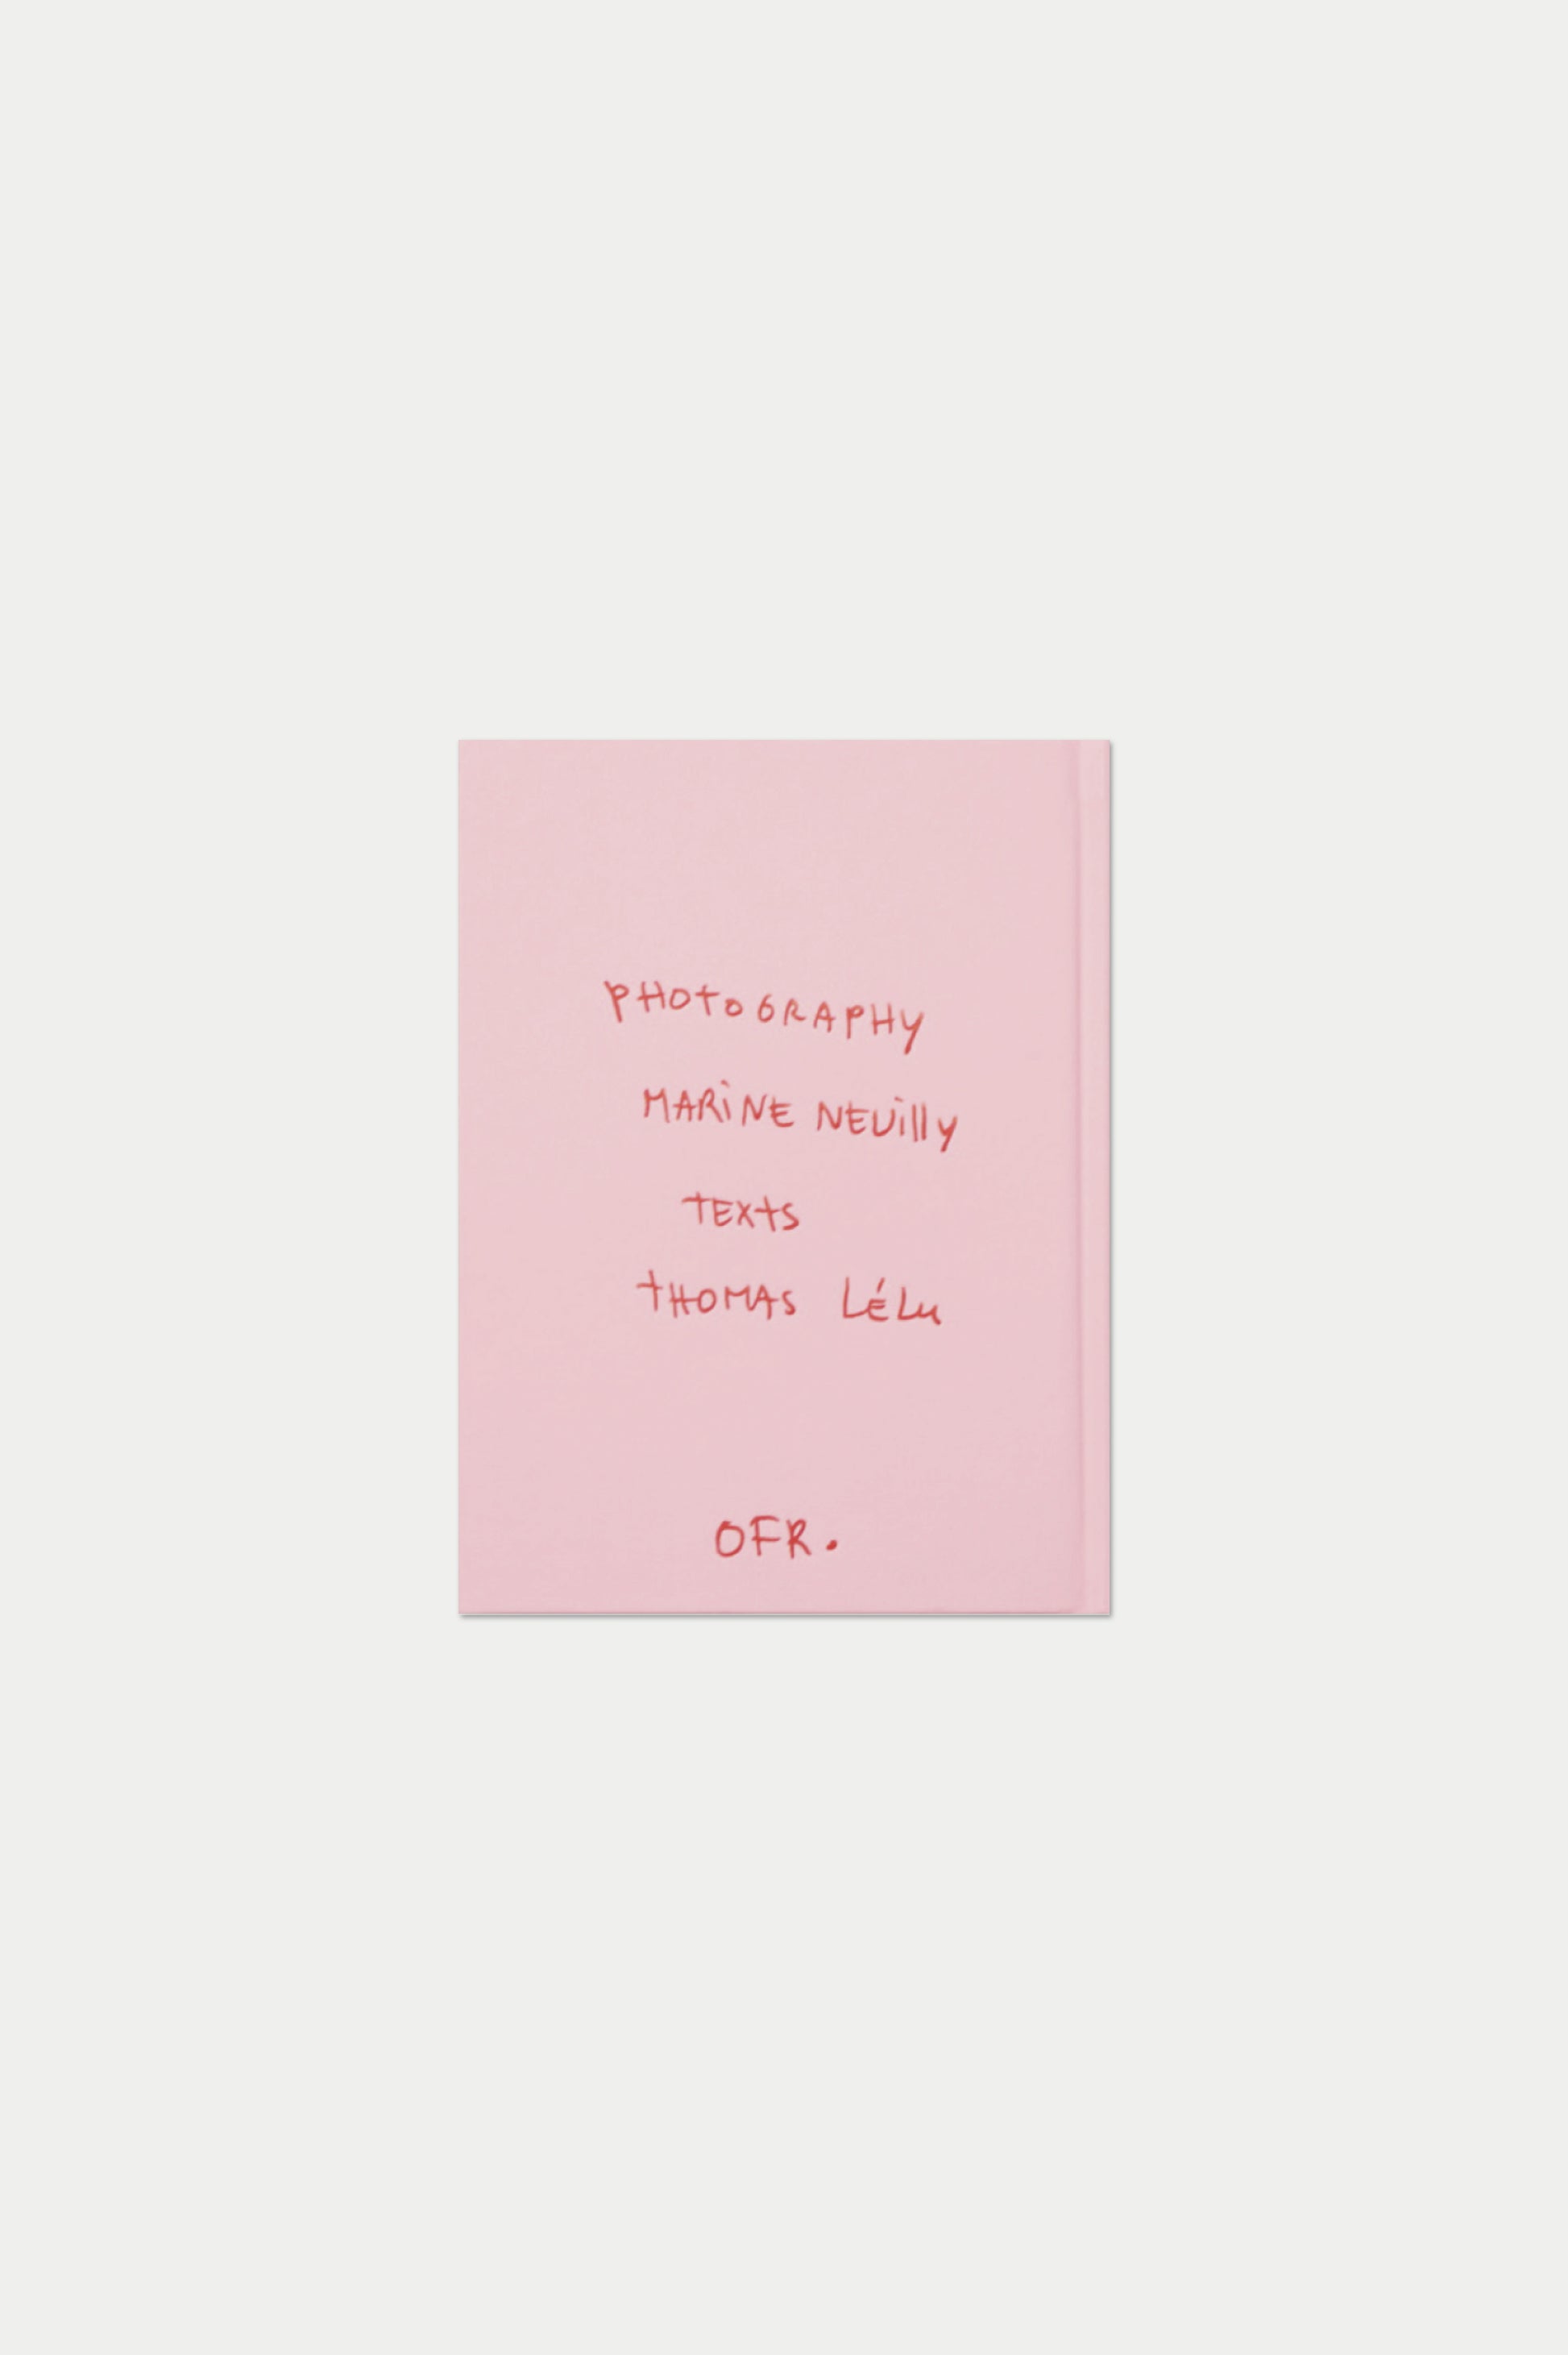 PHOTOGRAPHY
MARINE NEUilly
TEXTS
THOMAS LÉLu
OFR.